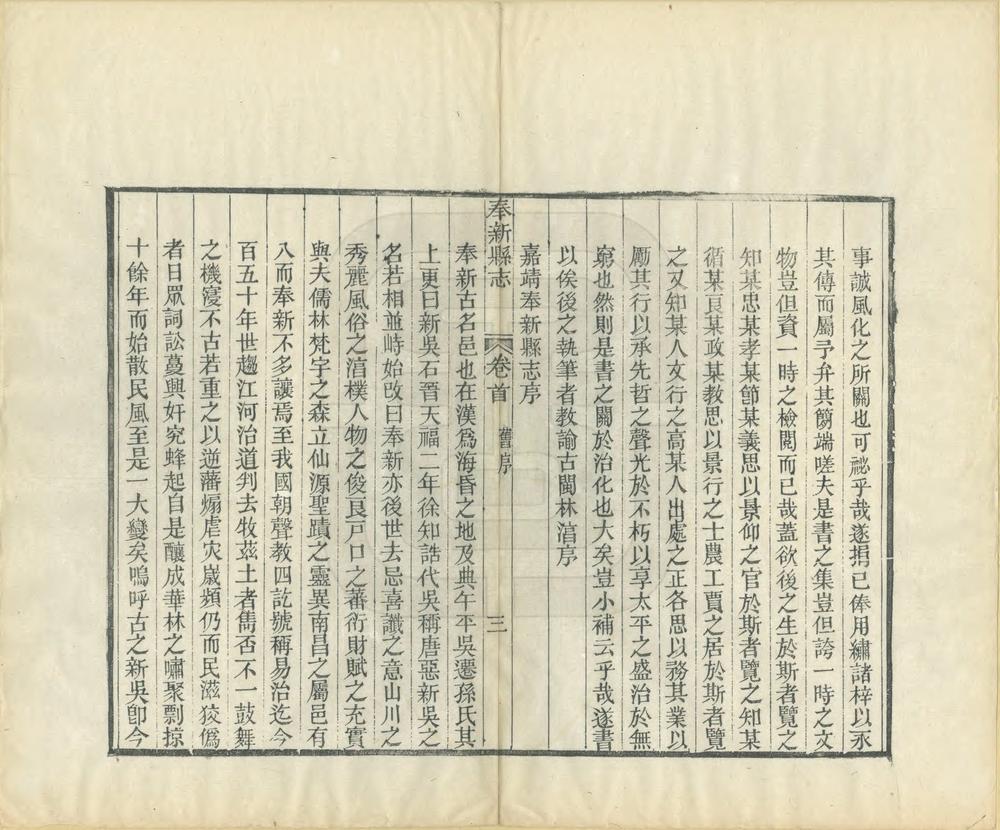 事誠風化之所關也可祕乎哉遂捐已俸用繡諸梓以永
其傳而屬予弁其簡端嗟夫是書之集豈但誇一時之文
物豈但資一時之檢閱而已哉蓋欲後之生於斯者覽之
知某忠某孝某節某義思以景仰之官於斯者覽之知某
循某良某政某教思以景行之士農工賈之居於斯者覽
之又知某人文行之高某人出處之正各思以務其業以
厲其行以承先哲之聲光於不朽以享太平之盛治於無
窮也然則是書之關於治化也大矣豈小補云乎哉遂書
以俟後之執筆者教諭古閩林渞序
嘉靖奉新縣志序
奉新縣志 卷首 舊序 三
奉新古名邑也在漢為海昏之地及典午平吳遷孫氏其
上更曰新吳石晉天福二年徐知誥代吳稱唐惡新吳之
名若相並峙始改曰奉新亦後世去忌喜讖之意山川之
秀麗風俗之渞樸人物之俊良戸口之蕃衍財賦之充實
與夫儒林梵宇之森立仙源聖蹟之靈異南昌之屬邑有
八而奉新不多讓焉至我國朝聲教四訖號稱易治迄今
百五十年世趨江河治道判去牧茲土者雋否不一鼓舞
之機寖不古若重之以逆藩煽虐灾嵗頻仍而民滋狡僞
者日眾詞訟蔓興奸宄蜂起自是釀成華林之嘯聚剽掠
十餘年而始散民風至是一大變矣嗚呼古之新吳卽今